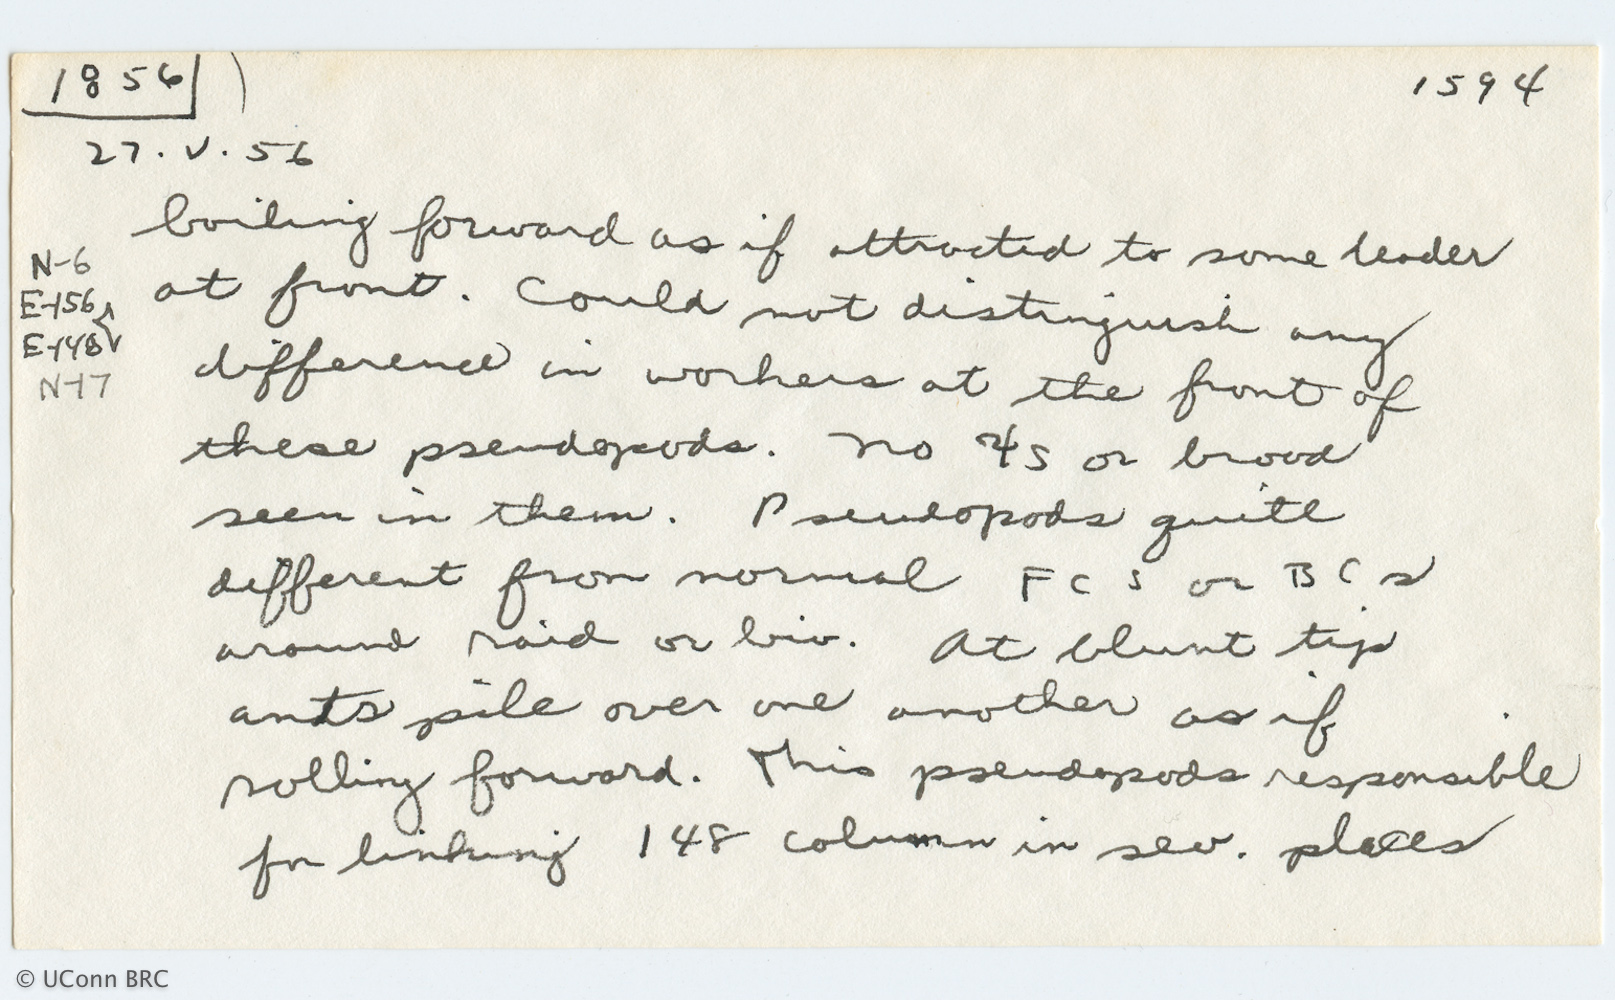 1856 1594
27.V.56
boiling forward as if attracted to some leader
N-6
E-156 at front. Could not distinguish any
E-148
N-17
difference in workers at the front of
these pseudopods. No ♀s or brood
seen in them. Pseudopods quite
different from normal FCs or BCs
around raid or biv. At blunt tip
ants pile over one another as if
rolling forward. This pseudopods responsible
for linking 148 column in sev. places
© UConn BRC